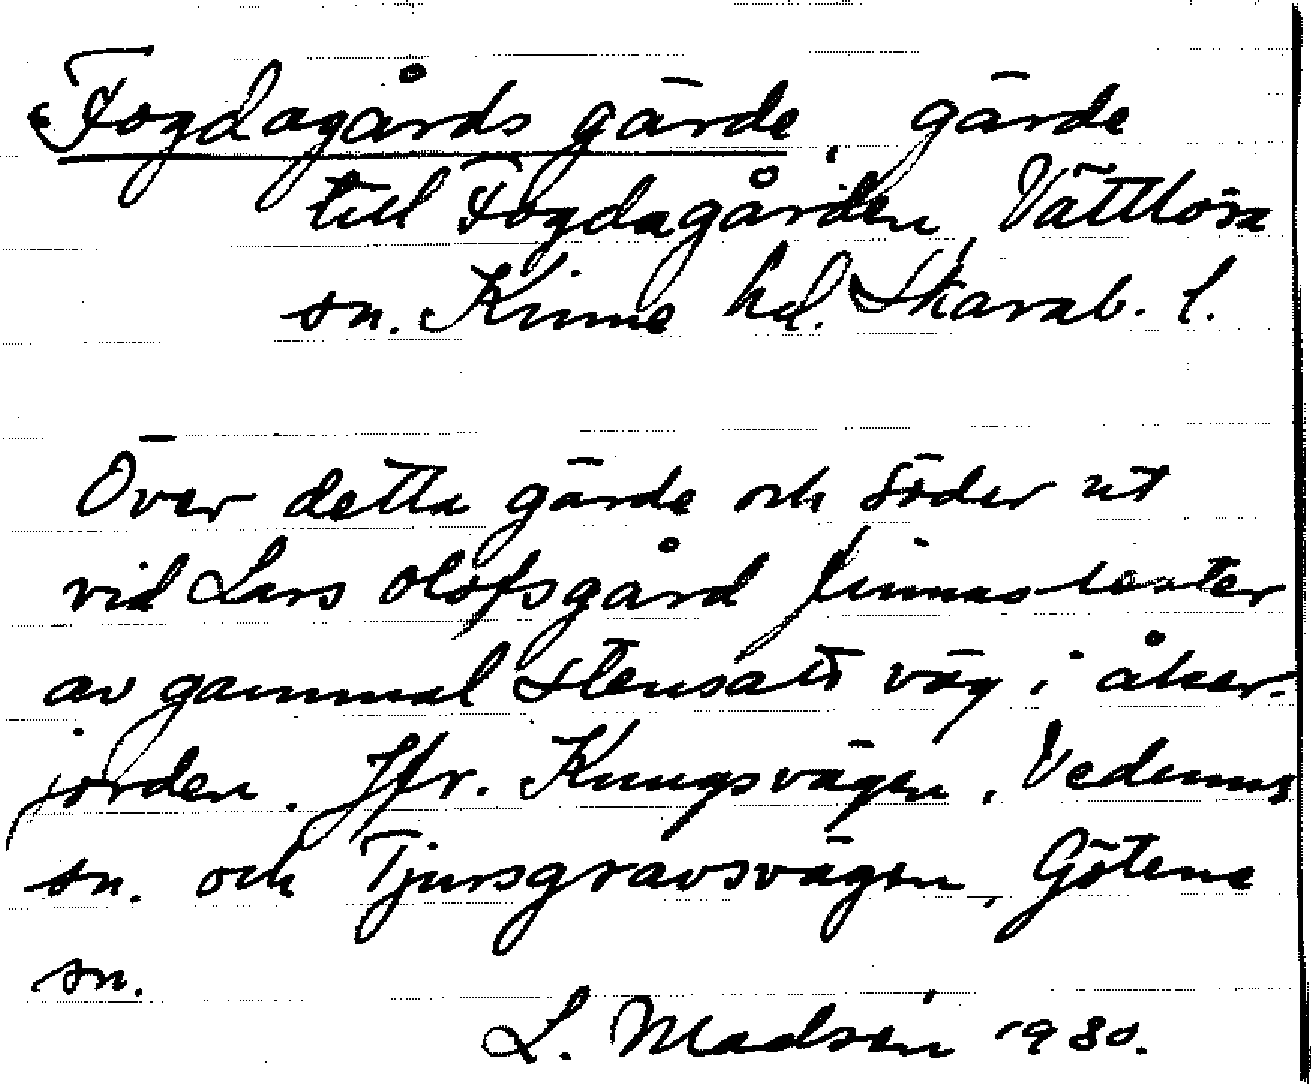 Fogdagårds gärde, gärde
till Fogdagården, Vättlösa
sn. Kinne hd. Skarab. l.
Över detta gärde och söder ut
vid Lars Olofsgård finnas rester
av gammal stensatt väg i åker-
jorden. Jfr. Kungsvägen, Vedums
sn. och Tjursgravsvägen, Götene
sn.
L. Madsén 1980.